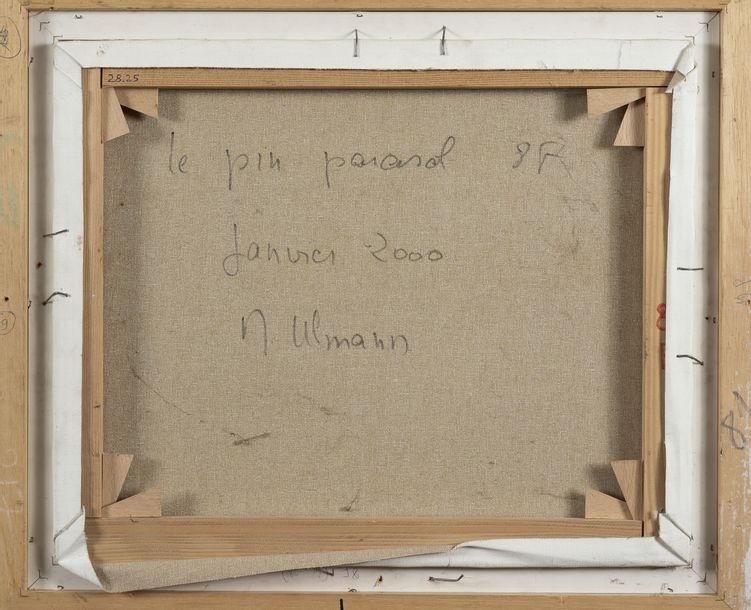 28.25
le pin parasol 8F
Janvier 2000
N. Ulmann
8
F